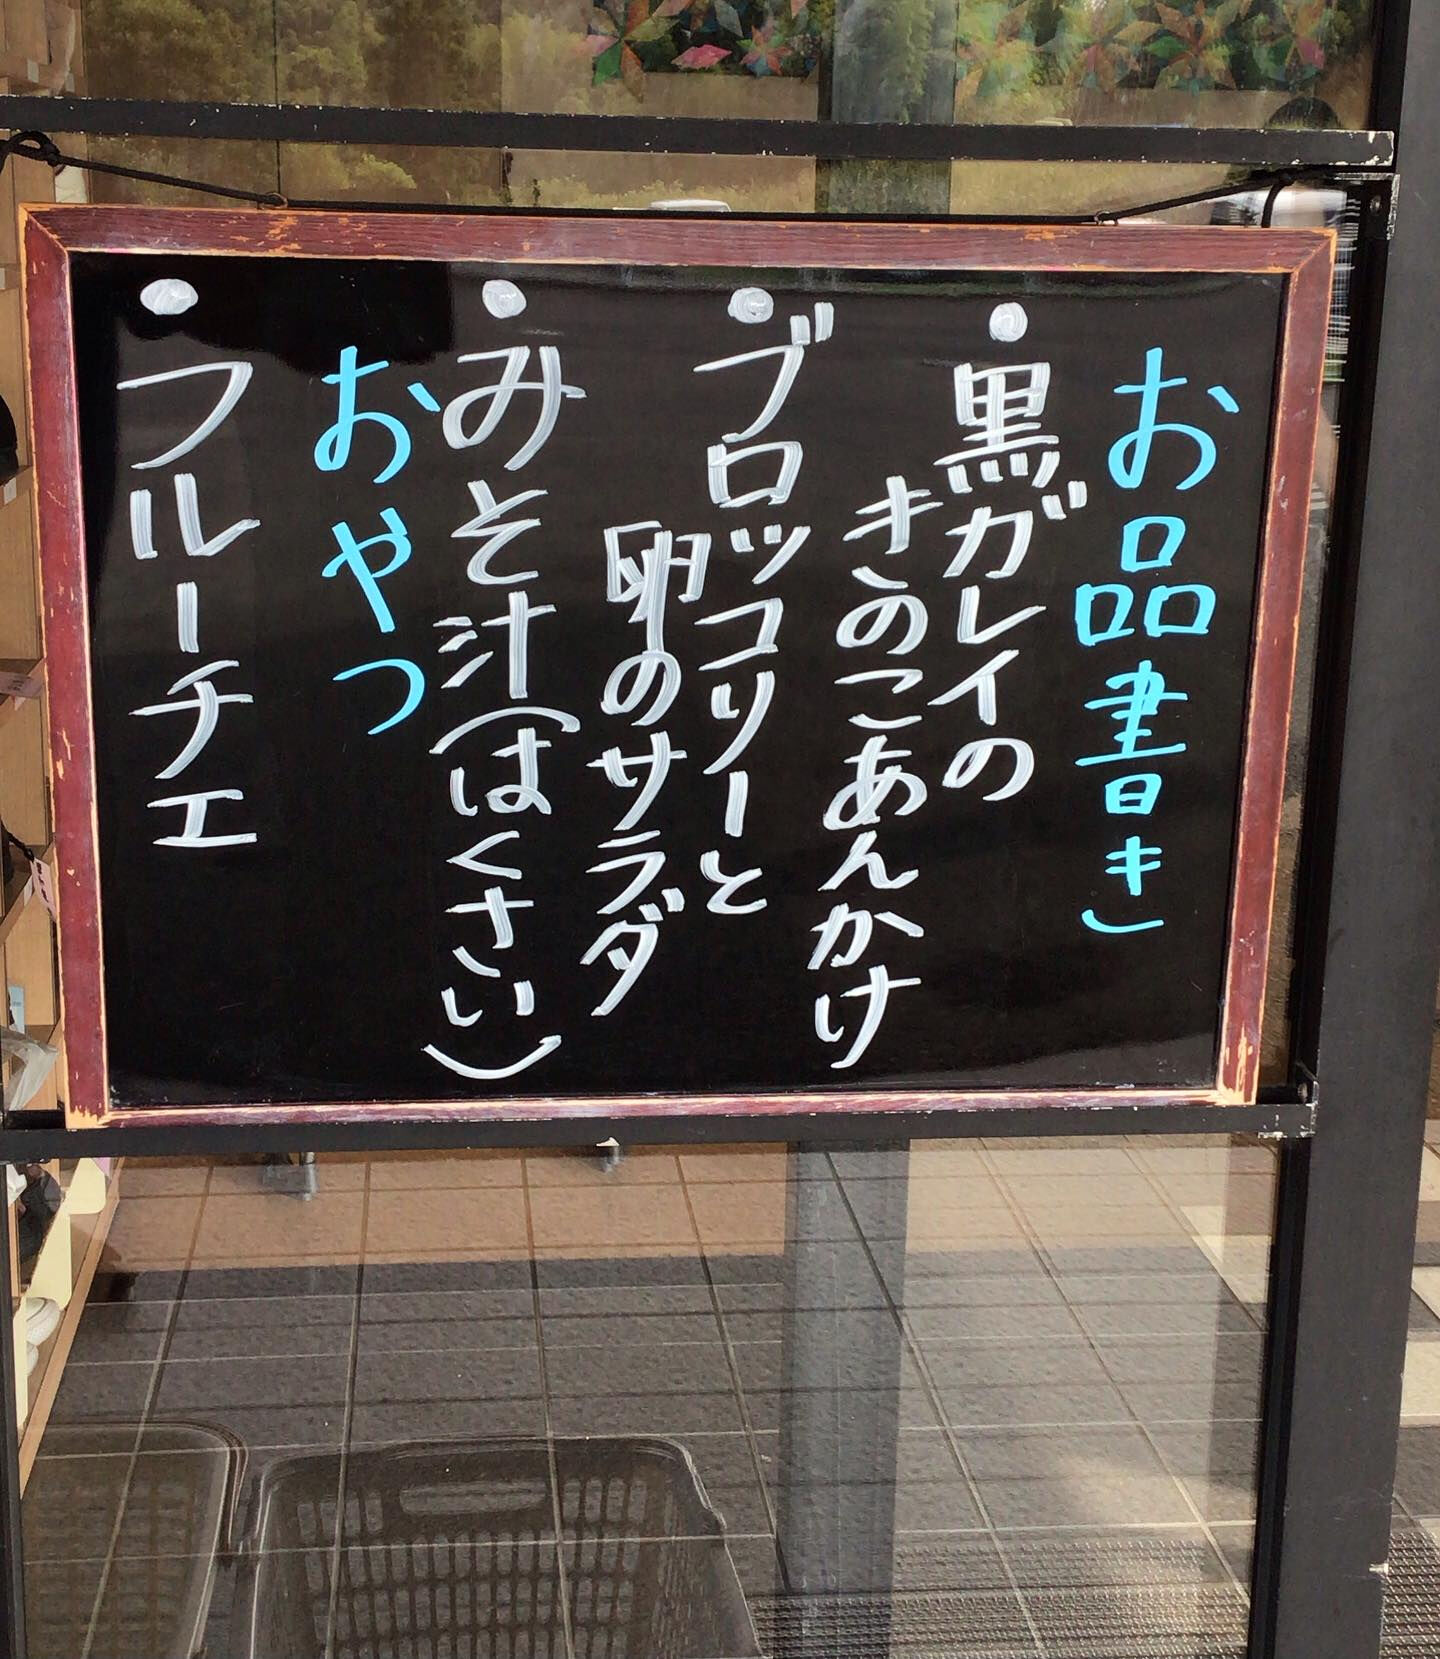 お品書き
・黒ガレイの
きのこあんかけ
・ブロッコリーと
卵のサラダ
・みそ汁(はくさい)
おやつ
・フルーチエ